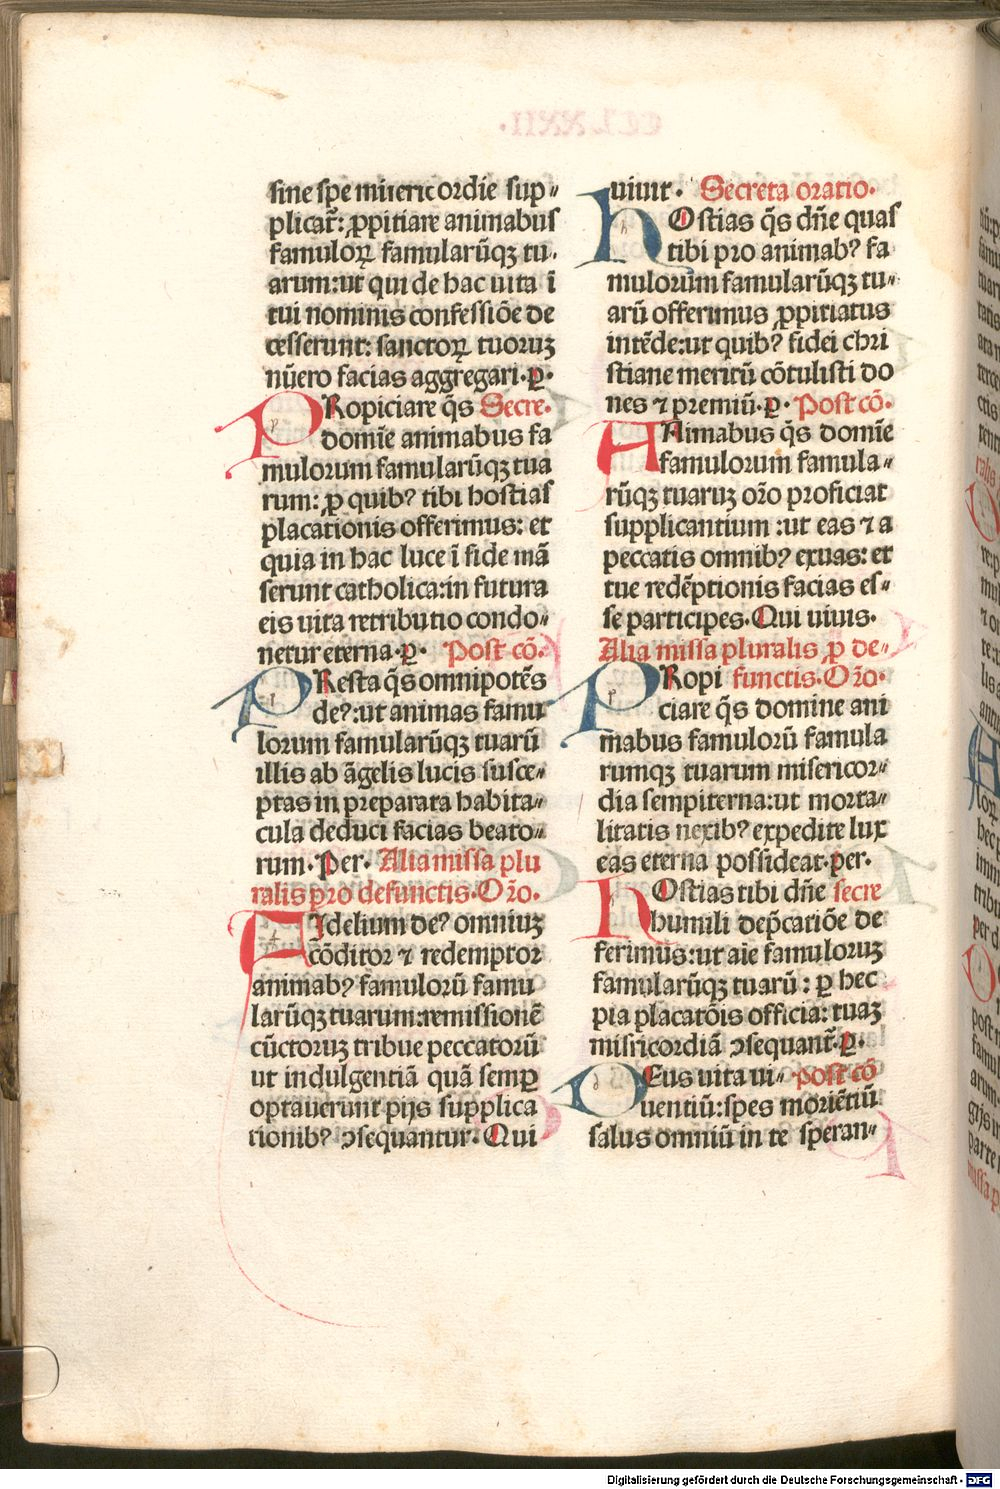 sine spe misericordie sup„
plicat᷑: ꝓpitiare animabus
famuloꝝ famularūqꝫ tu„
arum:ut qui de hac uita ī
tui nominis confessiōe de
cesserunt: sanctoꝝ tuoruꝫ
nūero facias aggregari.ꝑ.
PRopiciare q̄s Secre.
domīe animabus fa
mulorum famularūqꝫ tua
rum: ꝓ quibꝰ tibi hostias
placationis offerimus: et
quia in hac luce ī fide mā
serunt catholica:in futura
eis uita retributio condo„
netur eterna.ꝑ. Post cō.
PResta q̄s omnipotēs
deꝰ:ut animas famu
lorum famularūqꝫ tuarū
illis ab āgelis lucis susce„
ptas in preparata habita„
cula deduci facias beato„
rum. Per. Alia missa plu
ralis pro defunctis. Oꝛ̄o.
FIdelium deꝰ omniuꝫ
cōditor ⁊ redemptor
animabꝰ famulorū famu
larūqꝫ tuarum:remissionē
cūctoruꝫ tribue peccatorū
ut indulgentiā quā semꝑ
optauerunt pijs supplica
tionibꝰ ꝯsequantur. Qui
uiuit. Secreta oratio.
HOstias q̄s dn̄e quas
tibi pro animabꝰ fa
mulorum famularūqꝫ tu„
arū offerimus ꝓpitiatus
intēde:ut quibꝰ fidei chri
stiane meritū cōtulisti do
nes ⁊ premiū.ꝑ. Post cō.
ANimabus q̄s domīe
famulorum famula„
rūqꝫ tuaruꝫ oꝛ̄o proficiat
supplicantium :ut eas ⁊ a
peccatis omnibꝰ exuas: et
tue redēptionis facias es„
se participes. Qui uiuis.
Alia missa pluralis ꝓ de„
PRopi functis. Oꝛ̄o.
ciare q̄s domine ani
mabus famulorū famula
rumqꝫ tuarum misericor„
dia sempiterna:ut morta„
litatis nexibꝰ expedite lux
eas eterna possideat.per.
HOstias tibi dn̄e secre
humili dep̄catiōe de
ferimus:ut aīe famuloruꝫ
famularūqꝫ tuarū : ꝑ hec
pia placatōis officia: tuaꝫ
misr̄icordiā ꝯsequant᷑.ꝑ.
DEus uita ui„ .post cō
uentiū:spes moriētiū
salus omniū in te speran„
CCLXXII.
Digitalisierung gefördert durch die Deutsche Forschungsgemeinschaft - DFG